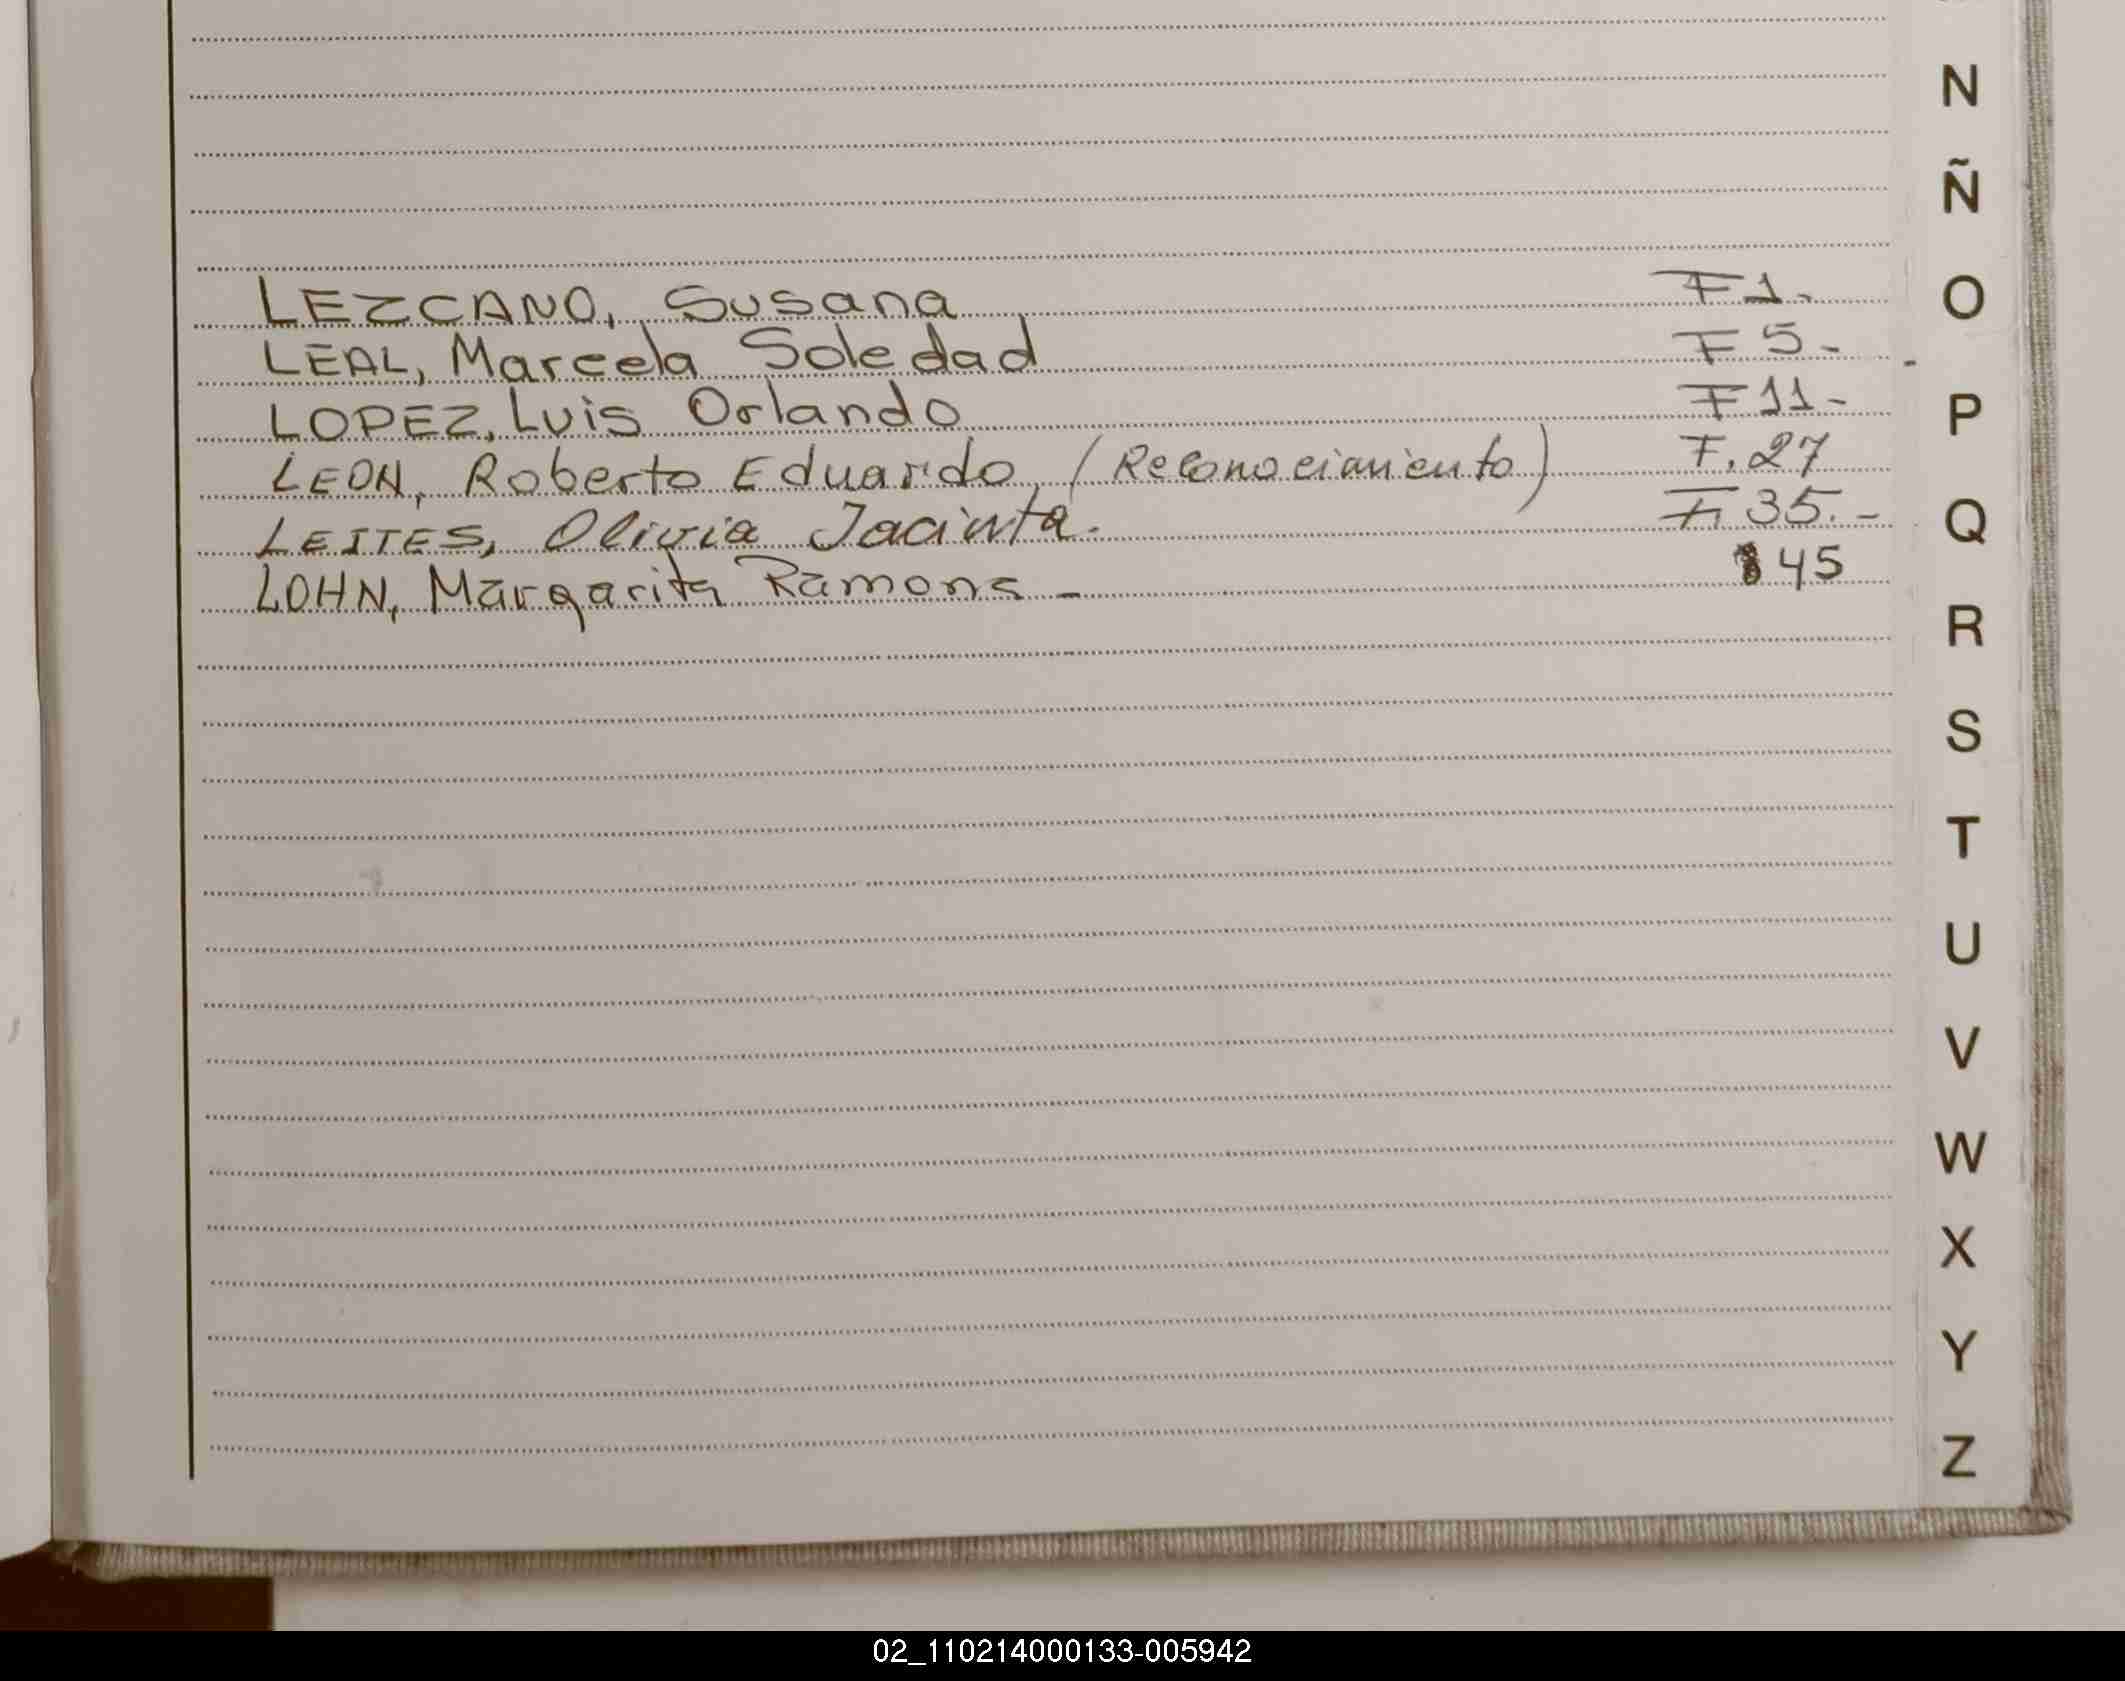 N
Ñ
LEZCANO, Susana F1-
O
LEAL, Marcela Soledad F 5-
LOPEZ, Luis Orlando F 11-
P
LEON, Roberto Eduardo (Reconocimiento) F. 27
LEITES, Olivia Jacinta. F 35.-
Q
LOHN, Margarita Ramona - 45
R
S
T
U
V
W
X
Y
Z
02_110214000133-005942